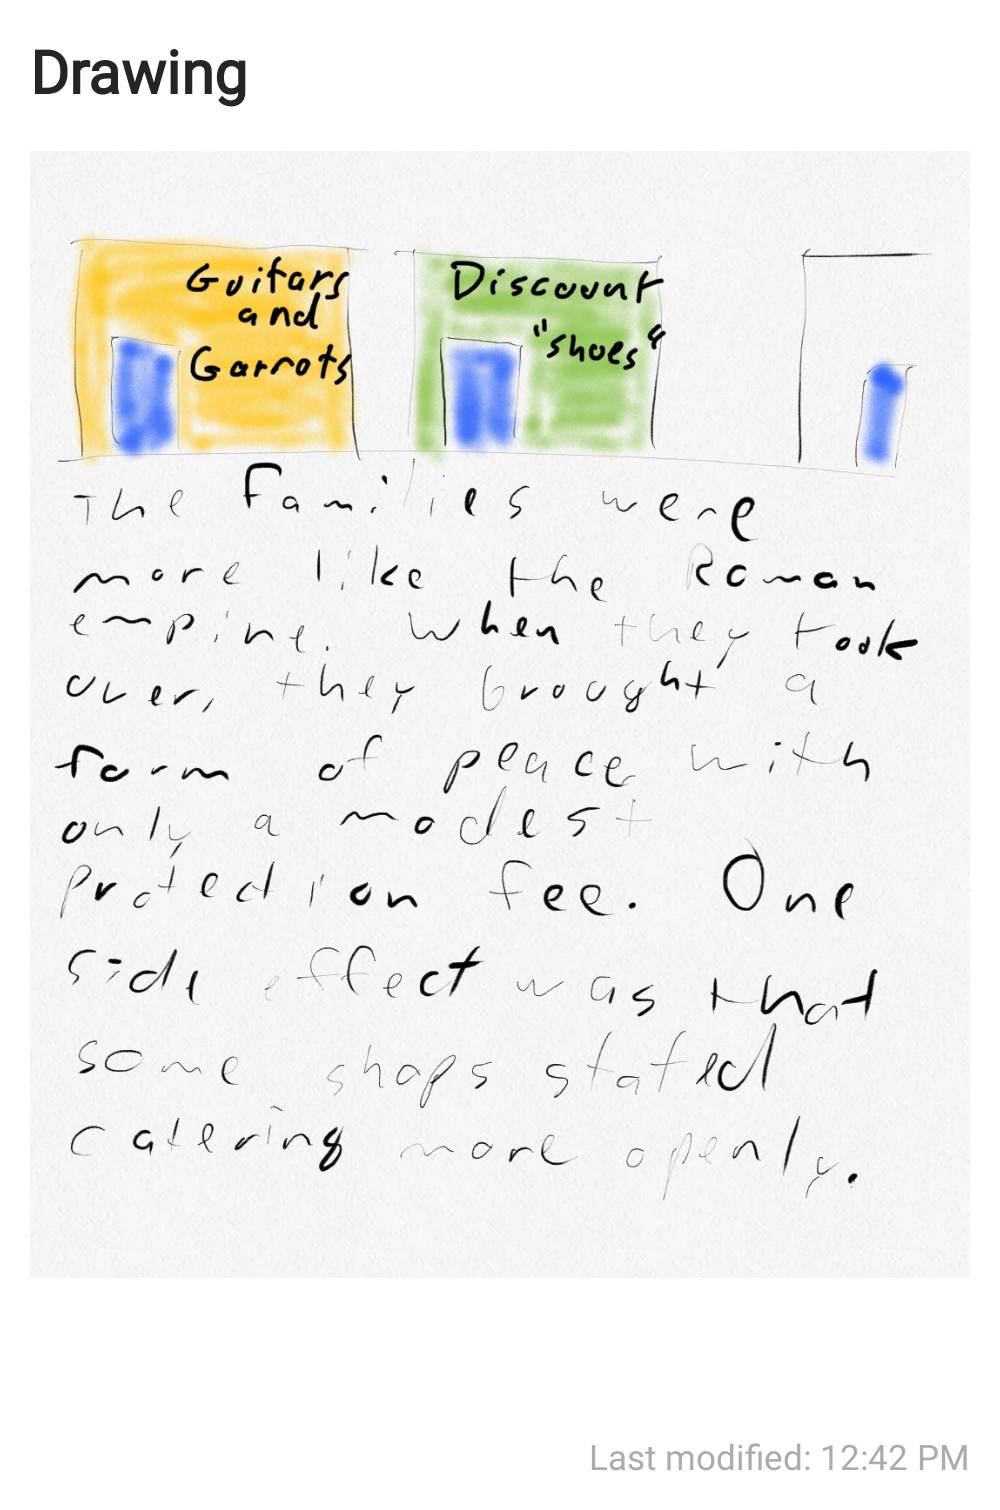 Drawing
Guitars
and
Garrots
Discount
"shoes"
The families were
more like the Roman
empire. When they took
over, they brought a
form of peace with
only a modest
protection fee. One
side effect was that
some shops stated
catering more openly.
Last modified: 12:42 PM